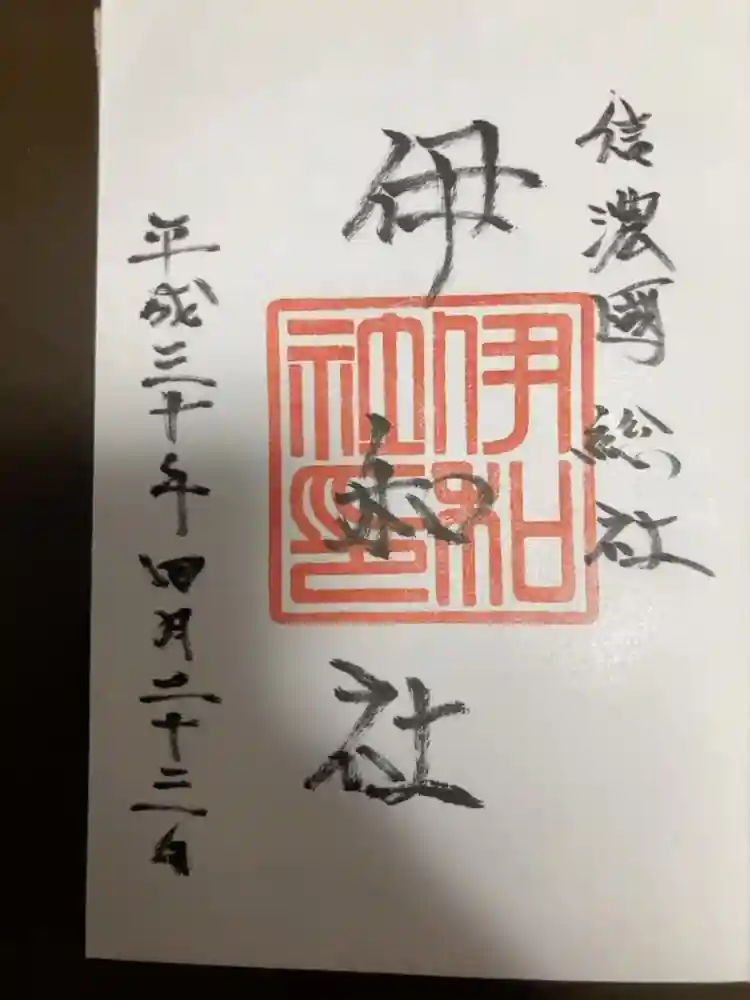 信濃國総社
伊和社
伊和
社印
平成三十年四月二十三日